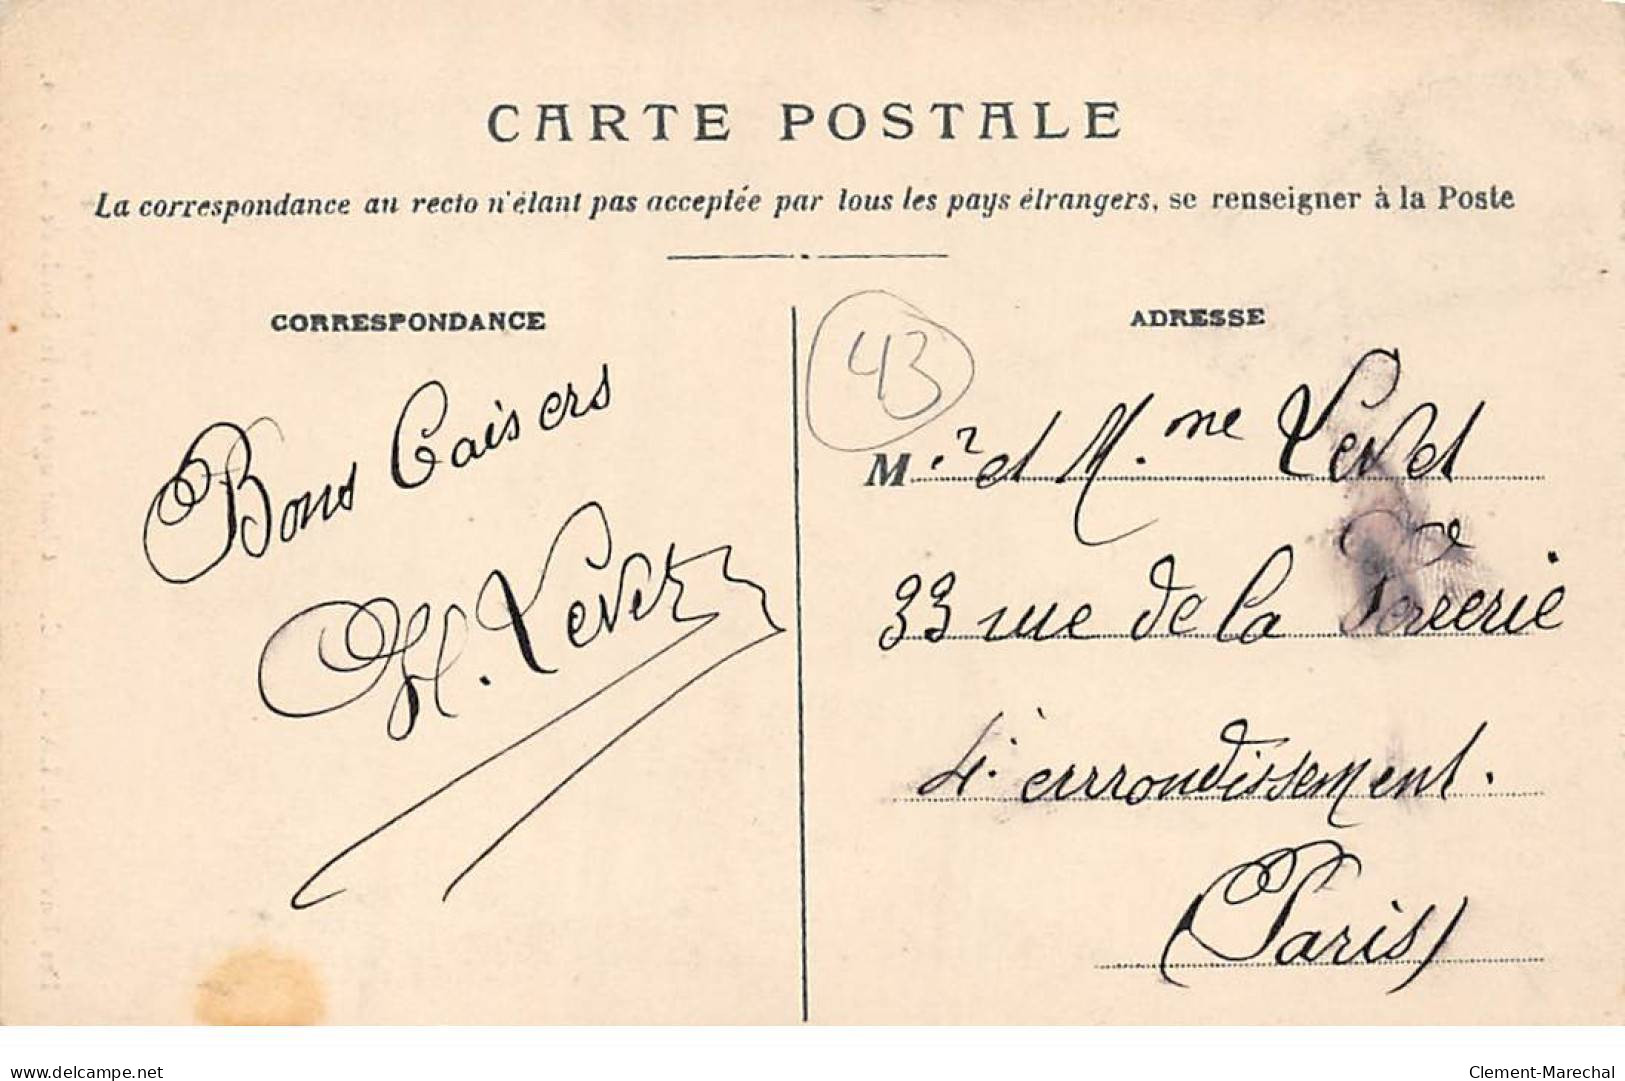 CARTE POSTALE
La correspondance au recto n'étant pas acceptée par tous les pays étrangers, se renseigner à la Poste
CORRESPONDANCE
Bons Baisers
H. Levet
43
ADRESSE
M.r et M.me Levet
33 rue de la Verrerie
4e arrondissement.
(Paris)
delcampe.net
Clement-Marechal